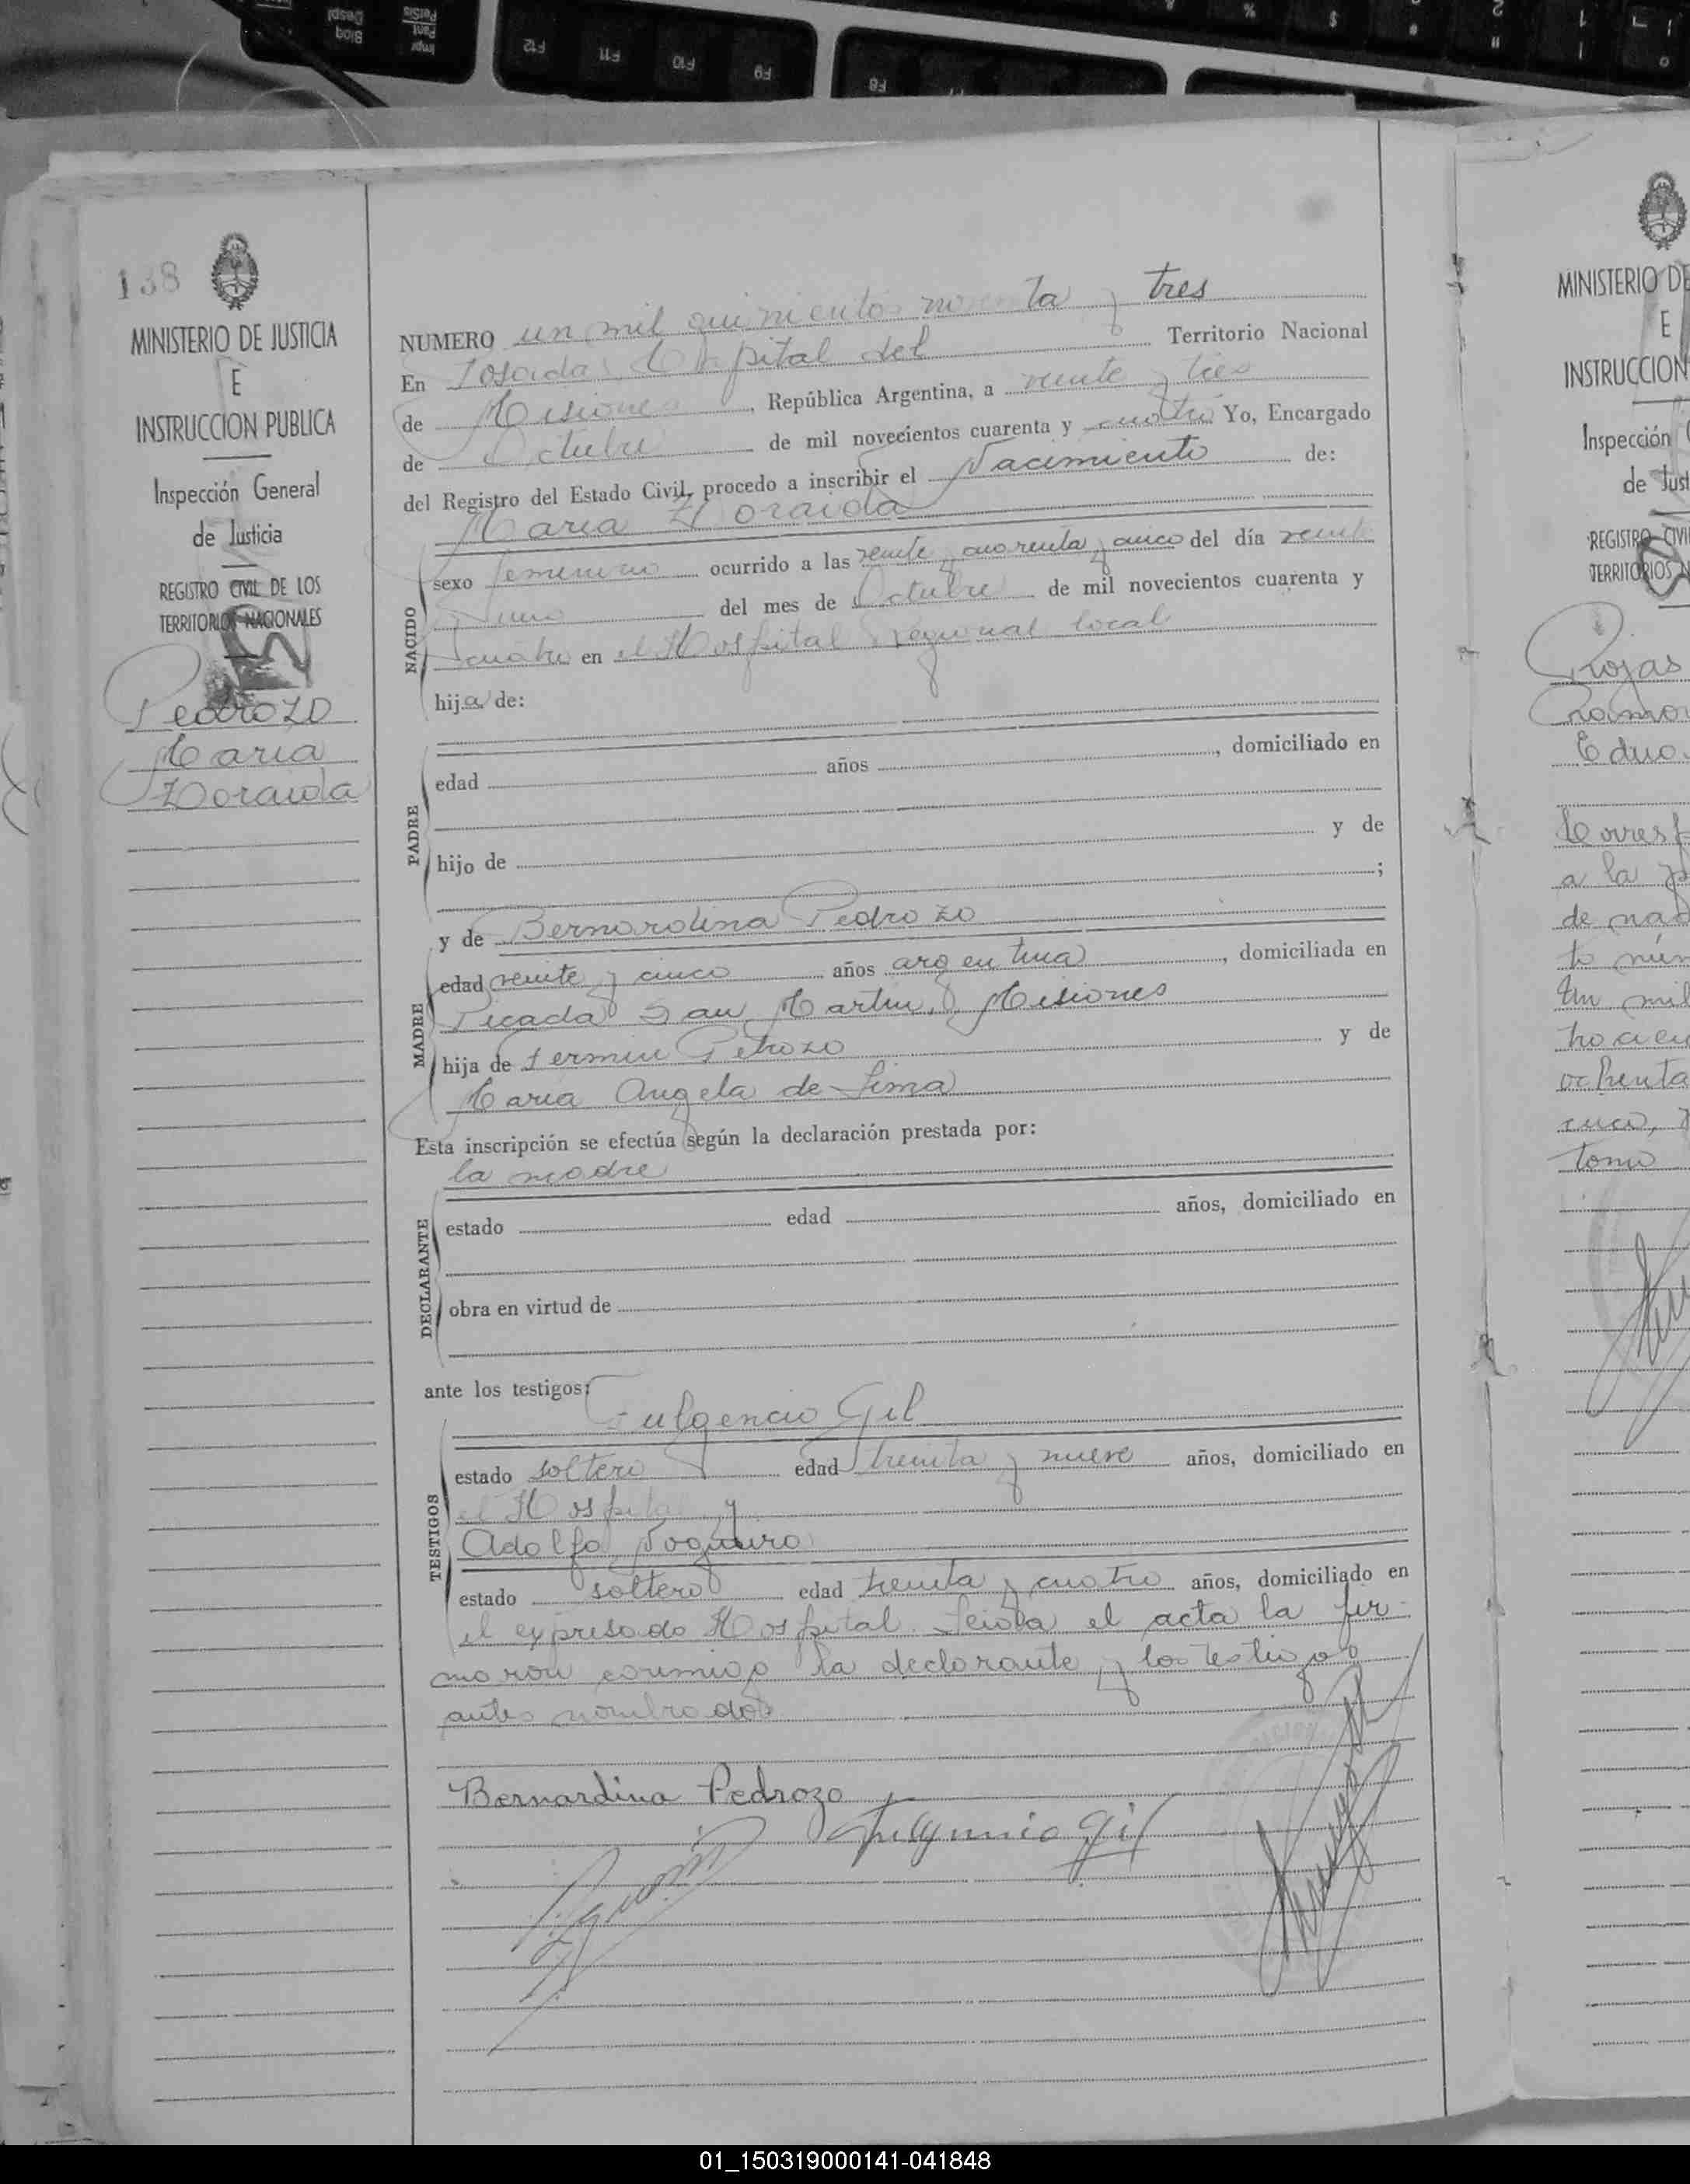 Impr
Pant
PetSis
Bloq
Despl
F12
F11
F10
F9
F8
138
MINISTERIO DE JUSTICIA
E
INSTRUCCION PUBLICA
Inspección General
de Justicia
REGISTRO CIVIL DE LOS
TERRITORIOS NACIONALES
Pedrozo
Maria
Zoraida
NUMERO un mil quinientos noventa y tres
En Posadas Capital del Territorio Nacional
de Misiones, República Argentina, a veinte y tres
de Octubre de mil novecientos cuarenta y cuatro Yo, Encargado
del Registro del Estado Civil, procedo a inscribir el Nacimiento de:
Maria Zoraida
NACIDO
sexo femenino ocurrido a las veinte y cuarenta y cinco del día veinte
y uno del mes de Octubre de mil novecientos cuarenta y
cuatro en el Hospital Regional local
hija de:
PADRE
edad años , domiciliado en
hijo de y de
;
y de Bernardina Pedrozo
MADRE
edad veinte y cinco años argentina , domiciliada en
Picada San Martin, Misiones
hija de Fermin Petrozo y de
Maria Angela de Lima
Esta inscripción se efectúa según la declaración prestada por:
la madre
DECLARANTE
estado edad años, domiciliado en
obra en virtud de
ante los testigos:
Fulgencio Gil
TESTIGOS
estado soltero edad treinta y nueve años, domiciliado en
el Hospital y
Adolfo
estado soltero edad treinta y cuatro años, domiciliado en
el expresado Hospital. Leida el acta la fir-
maron conmigo la declarante y los testigos
antes nombrados
Bernardina Pedrozo
Fulgencio Gil
MINISTERIO DE
E
INSTRUCCION
Inspección
de Just
REGISTRO CIVI
TERRITORIOS N
Rojas
Ramo
Edua
Corresp
a la
de nac
to núm
Un mil
ochenta
tomo
01_150319000141-041848